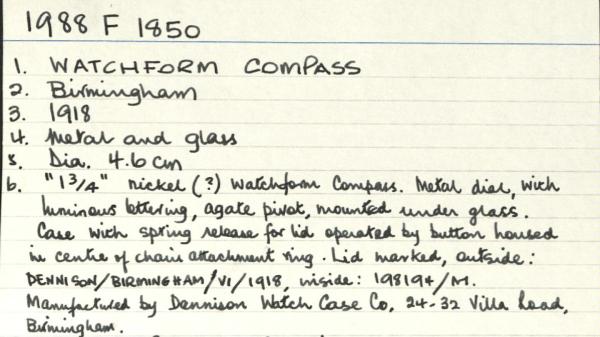 1988 F 1850
1. WATCHFORM COMPASS
2. Birmingham
3. 1918
4. Metal and glass
5. Dia. 4.6 cm
6. "1 3/4" nickel (?) watchform compass. Metal dial, with
luminous lettering, agate pivot, mounted under glass.
Case with spring release for lid operated by button housed
in centre of chain attachment ring. Lid marked, outside:
DENNISON/BIRMINGHAM/VI/1918, inside: 198194/M.
Manufactured by Dennison Watch Case Co, 24-32 Villa Road,
Birmingham.